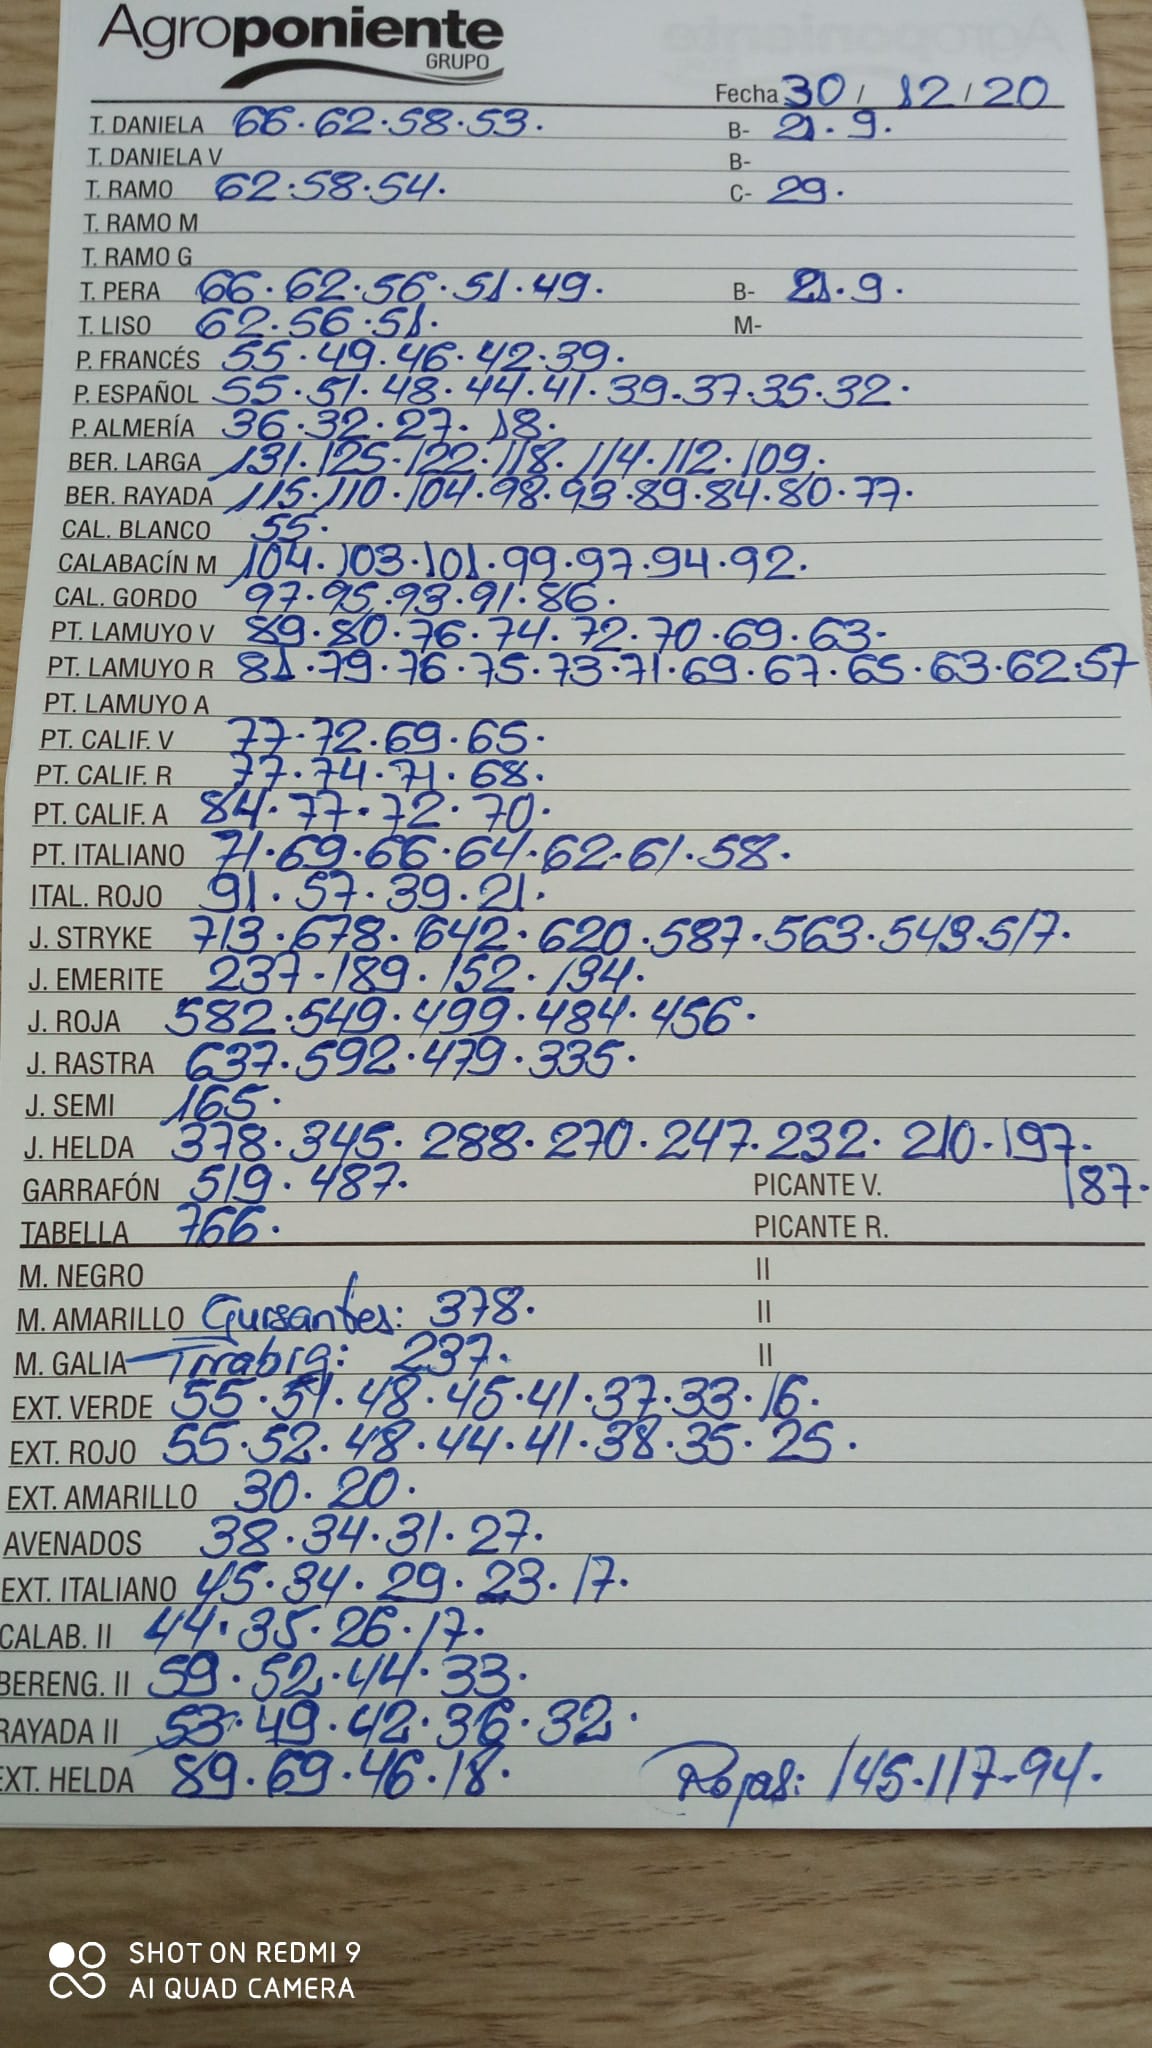 Agroponiente
GRUPO
Fecha 30 / 12 / 20
T. DANIELA 66.62.58.53. B- 21.9.
T. DANIELA V B-
T. RAMO 62.58.54. C- 29.
T. RAMO M
T. RAMO G
T. PERA 66.62.56.51.49. B- 21.9.
T. LISO 62.56.51. M-
P. FRANCÉS 55.49.46.42.39.
P. ESPAÑOL 55.51.48.44.41.39.37.35.32.
P. ALMERÍA 36.32.27.18.
BER. LARGA 131.125.122.118.114.112.109.
BER. RAYADA 115.110.104.98.93.89.84.80.77.
CAL. BLANCO 55.
CALABACÍN M 104.103.101.99.97.94.92.
CAL. GORDO 97.95.93.91.86.
PT. LAMUYO V 89.80.76.74.72.70.69.63.
PT. LAMUYO R 81.79.76.75.73.71.69.67.65.63.62.57
PT. LAMUYO A
PT. CALIF. V 77.72.69.65.
PT. CALIF. R 77.74.71.68.
PT. CALIF. A 84.77.72.70.
PT. ITALIANO 71.69.66.64.62.61.58.
ITAL. ROJO 91.57.39.21.
J. STRYKE 713.678.642.620.587.563.549.517.
J. EMERITE 237.189.152.134.
J. ROJA 582.549.499.484.456.
J. RASTRA 637.592.479.335.
J. SEMI 165.
J. HELDA 378.345.288.270.247.232.210.197.
GARRAFÓN 519.487. PICANTE V. 187.
TABELLA 766. PICANTE R.
M. NEGRO II
M. AMARILLO Guisantes: 378. II
M. GALIA Tirabig: 237. II
EXT. VERDE 55.51.48.45.41.37.33.16.
EXT. ROJO 55.52.48.44.41.38.35.25.
EXT. AMARILLO 30.20.
AVENADOS 38.34.31.27.
EXT. ITALIANO 45.34.29.23.17.
CALAB. II 44.35.26.17.
BERENG. II 59.52.44.33.
RAYADA II 53.49.42.36.32.
EXT. HELDA 89.69.46.18. Rojas: 145.117.94.
SHOT ON REDMI 9
AI QUAD CAMERA